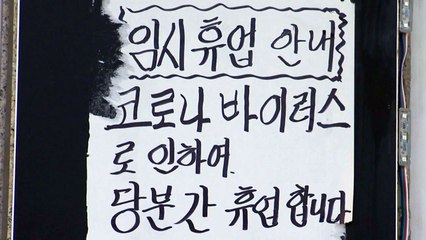 임시휴업 안내
코로나 바이러스
로 인하여.
당분간 휴업 합니다